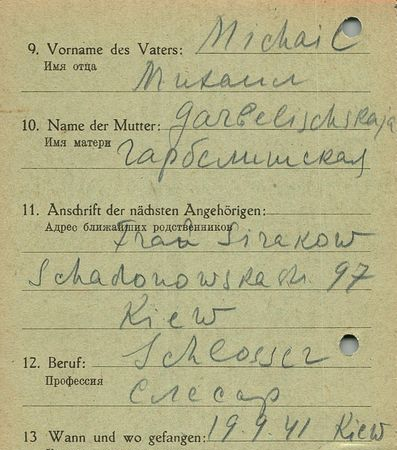 9. Vorname des Vaters: Michail
Имя отца
Михаил
10. Name der Mutter: Garbelischskaja
Имя матери
Гарбелишская
11. Anschrift der nächsten Angehörigen:
Адрес ближайших родственников
Frau Sirakow
97
Kiew
12. Beruf: Schlosser
Профессия
Слесар
13 Wann und wo gefangen: 19.9.41 Kiew